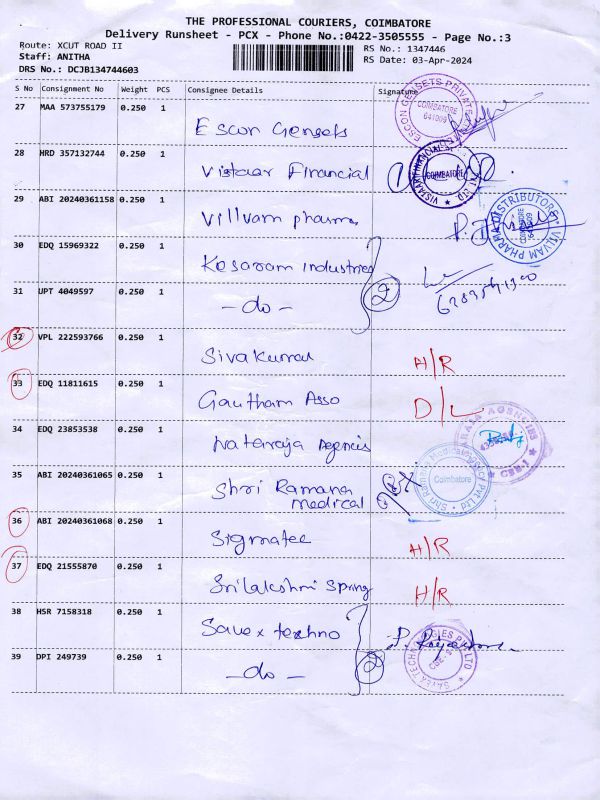 THE PROFESSIONAL COURIERS, COIMBATORE
Delivery Runsheet - PCX - Phone No.:0422-3505555 - Page No.:3
Route: XCUT ROAD II
RS No.: 1347446
Staff: ANITHA
RS Date: 03-Apr-2024
DRS No.: DCJB134744603
S No Consignment No Weight PCS Consignee Details Signature
27 MAA 573755179 0.250 1
Escon Gensets
ESCON GENSETS PRIVATE
COIMBATORE
641009
28 HRD 357132744 0.250 1
Vistaar Financial
COIMBATORE
29 ABI 20240361158 0.250 1
Villvam pharma
VILVAM PHARMA DISTRIBUTORS
COIMBATORE
30 EDQ 15969322 0.250 1
Kesaram industries
2
31 UPT 4049597 0.250 1
- do -
32 VPL 222593766 0.250 1
Sivakumar
H/R
33 EDQ 11811615 0.250 1
Gautham Asso
D/L
34 EDQ 23853538 0.250 1
Nataraja Agencis
AGENCIES
35 ABI 20240361065 0.250 1
Shri Ramana
medical
Coimbatore
36 ABI 20240361068 0.250 1
Sigmatec
H/R
37 EDQ 21555870 0.250 1
Srilakshmi Spring
H/R
38 HSR 7158318 0.250 1
Savex techno
2
39 DPI 249739 0.250 1
- do -